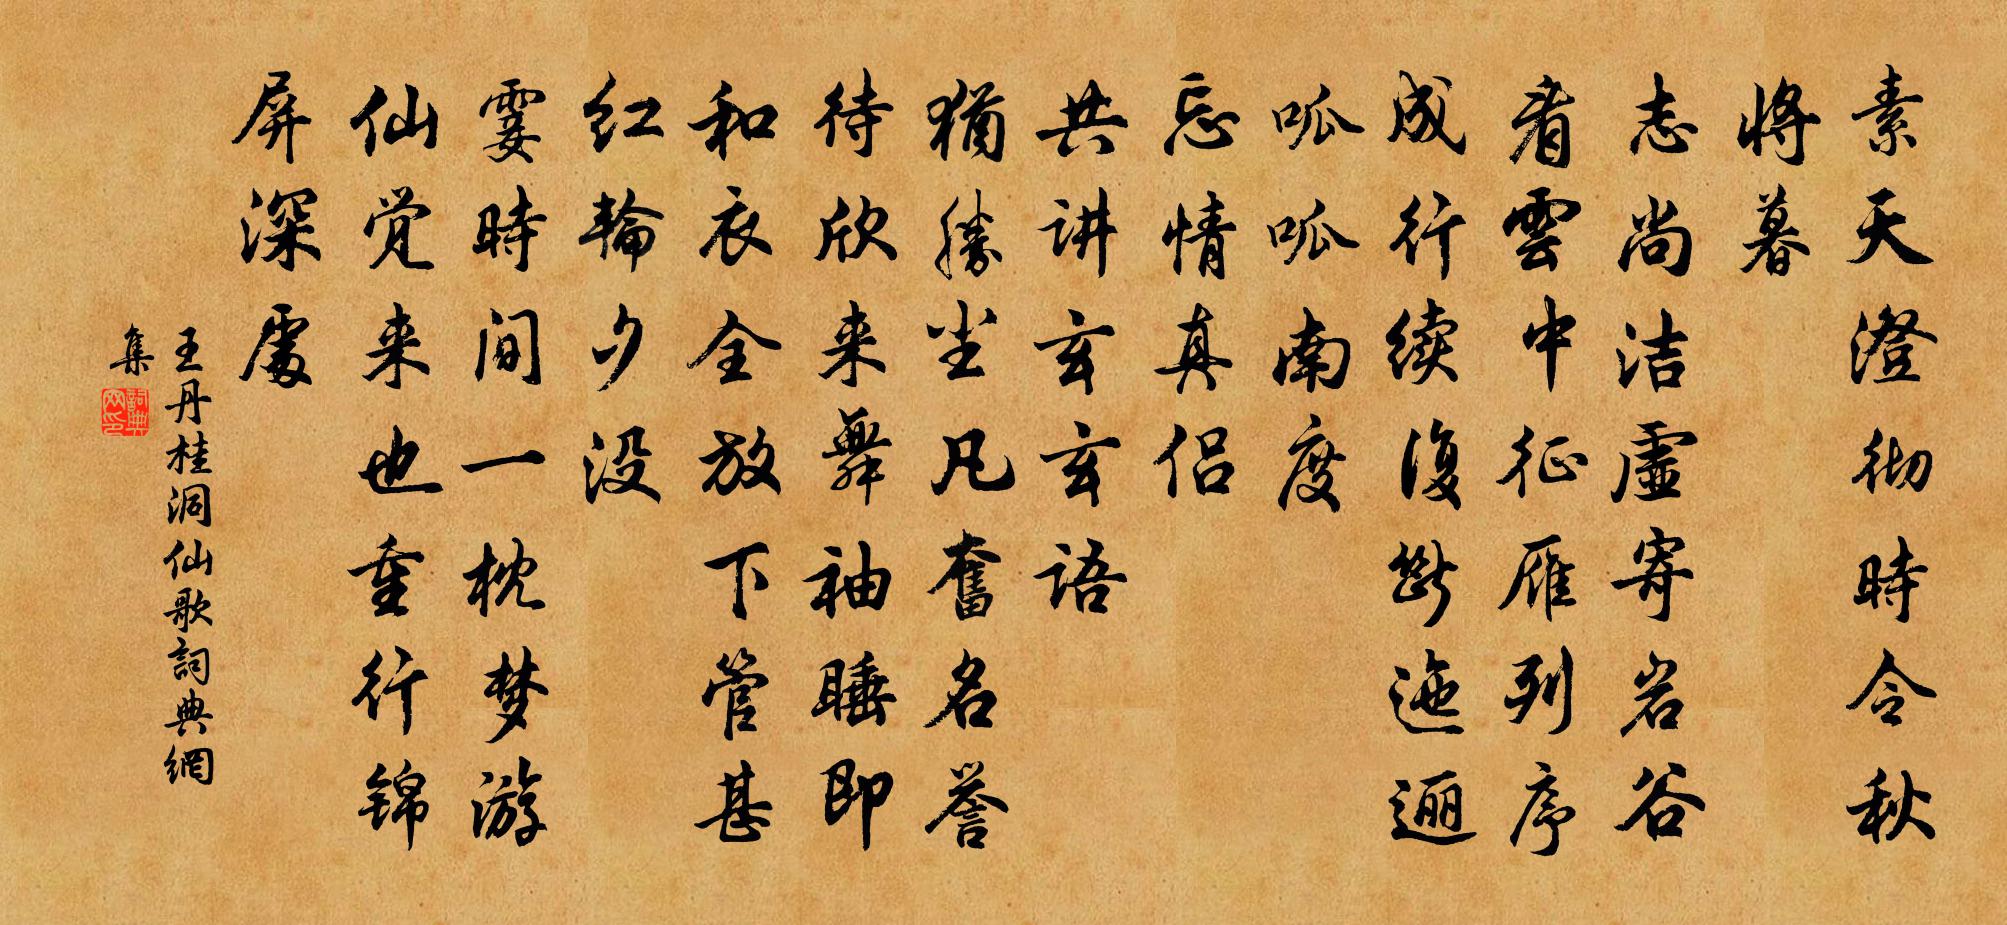 素天澄彻時令秋
將暮
志尚洁虛寄岩谷
看雲中征雁列序
成行续復斷迤逦
呱呱南度
忘情真侣
共讲玄玄语
猶勝尘凡奮名誉
待欣来舞袖睡即
和衣全放下管甚
红輪夕没
霎時间一枕梦游
仙觉来也重行锦
屏深處
王丹桂洞仙歌詞典網
集
詞典网印